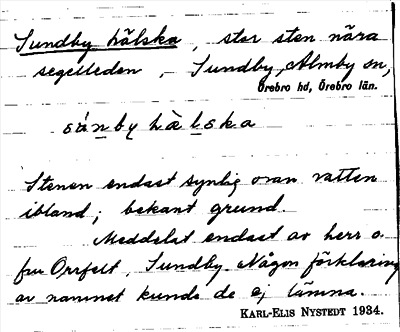 Sundby hälska, stor sten nära
segelleden, - Sundby, Almby sn,
Örebro hd, Örebro län.
sánby hàlska
Stenen endast synlig ovan vatten
ibland; bekant grund.
Meddelat endast av herr o.
fru Orrfelt, Sundby. Någon förklaring
av namnet kunde de ej lämna.
KARL-ELIS NYSTEDT 1934.